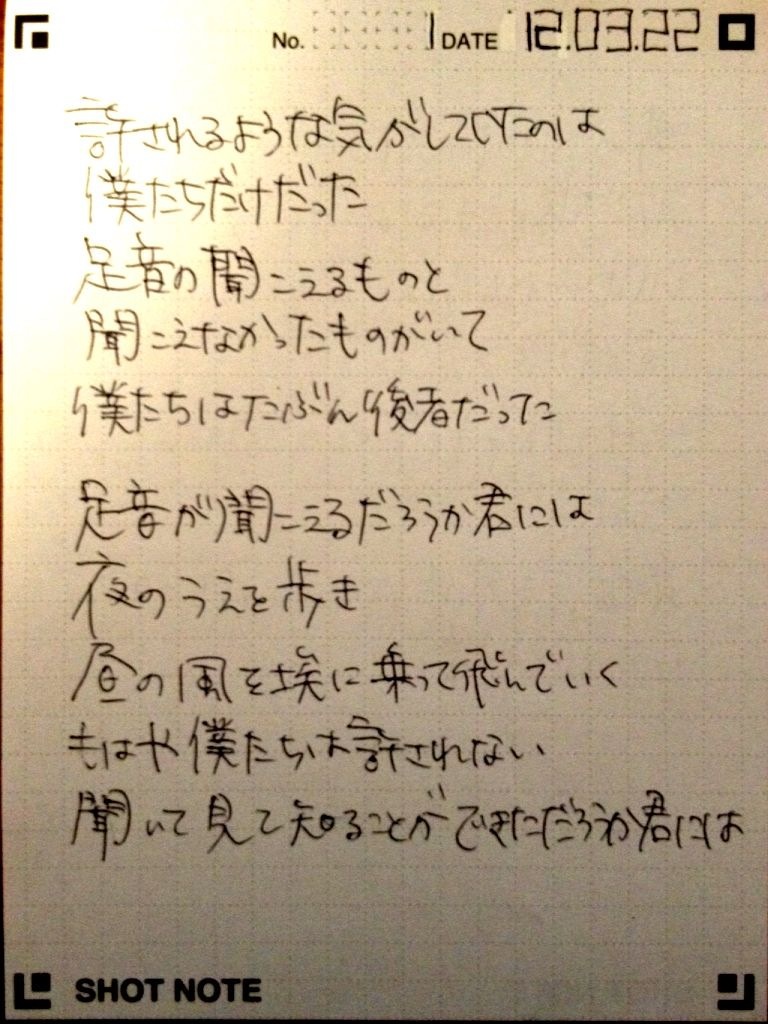 No. 1 DATE 12.03.22
許されるような気がしていたのは
僕たちだけだった
足音の聞こえるものと
聞こえなかったものがいて
僕たちはたぶん後者だった
足音が聞こえるだろうか君には
夜のうえを歩き
昼の風を埃に乗って飛んでいく
もはや僕たちは許されない
聞いて見て知ることができただろうか君には
SHOT NOTE